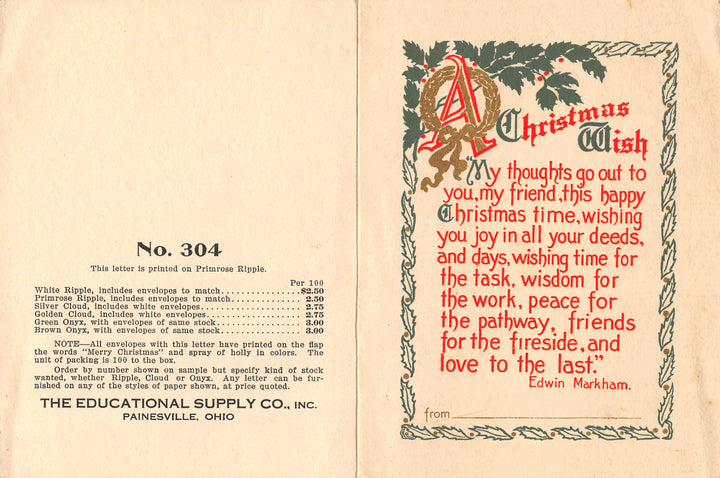 No. 304
This letter is printed on Primrose Ripple.
Per 100
White Ripple, includes envelopes to match..................$2.50
Primrose Ripple, includes envelopes to match............... 2.50
Silver Cloud, includes white envelopes..................... 2.75
Golden Cloud, includes white envelopes..................... 2.75
Green Onyx, with envelopes of same stock................... 3.00
Brown Onyx, with envelopes of same stock................... 3.00
NOTE—All envelopes with this letter have printed on the flap
the words "Merry Christmas" and spray of holly in colors. The
unit of packing is 100 to the box.
Order by number shown on sample but specify kind of stock
wanted, whether Ripple, Cloud or Onyx. Any letter can be fur-
nished on any of the styles of paper shown, at price quoted.
THE EDUCATIONAL SUPPLY CO., INC.
PAINESVILLE, OHIO
A Christmas
Wish
"My thoughts go out to
you, my friend, this happy
Christmas time, wishing
you joy in all your deeds,
and days, wishing time for
the task, wisdom for
the work, peace for
the pathway, friends
for the fireside, and
love to the last."
Edwin Markham.
from